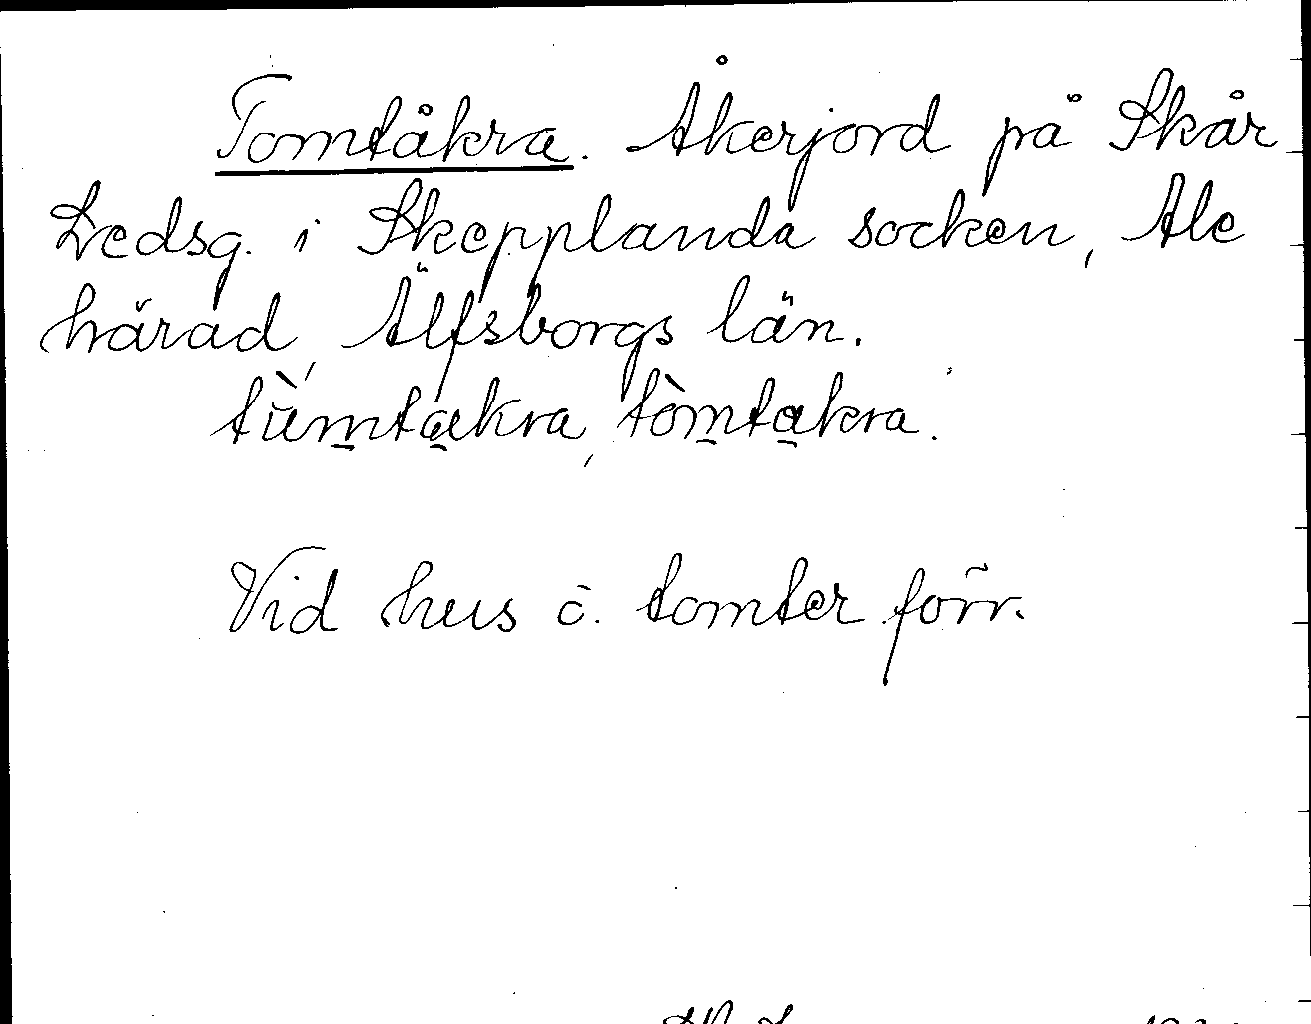 Tomtåkra. Åkerjord på Skår
Ledsg. i Skepplanda socken, Ale
härad, Älfsborgs län.
tùmtakra, tòmtakra.
Vid hus o. tomter förr.